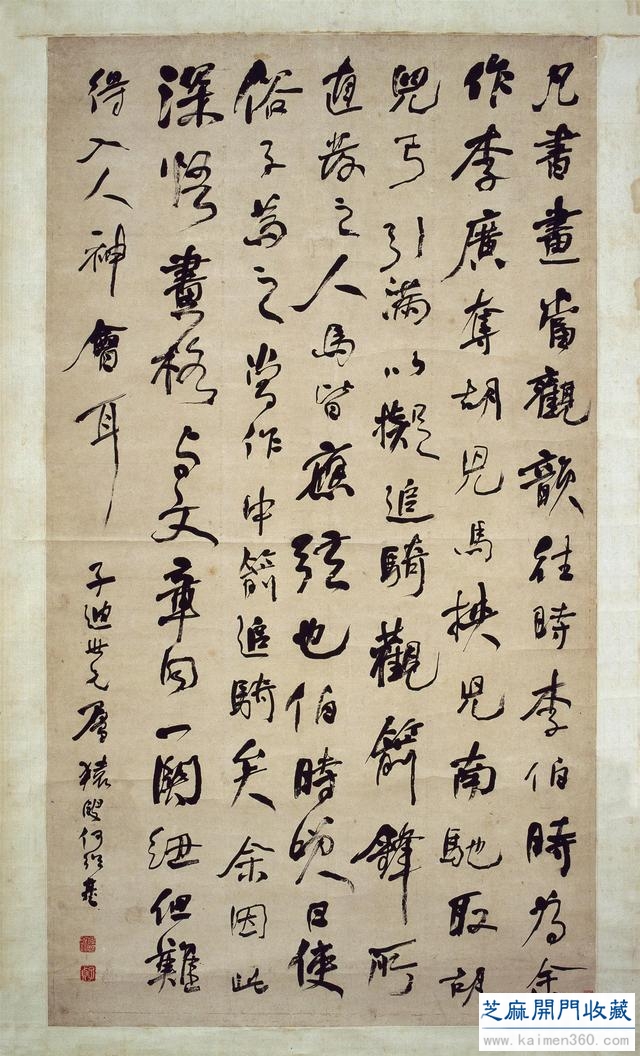 凡書畫當觀韻往時李伯時為余
作李廣奪胡兒馬挾兒南馳取胡
兒弓引滿以擬追騎觀箭鋒所
直發之人馬皆應弦也伯時笑曰使
俗子為之當作中箭追騎矣余因此
深悟畫格与文章同一關紐但難
得入人神會耳
子迪世兄屬 猿叟何紹基
芝麻開門收藏
www.kaimen360.com